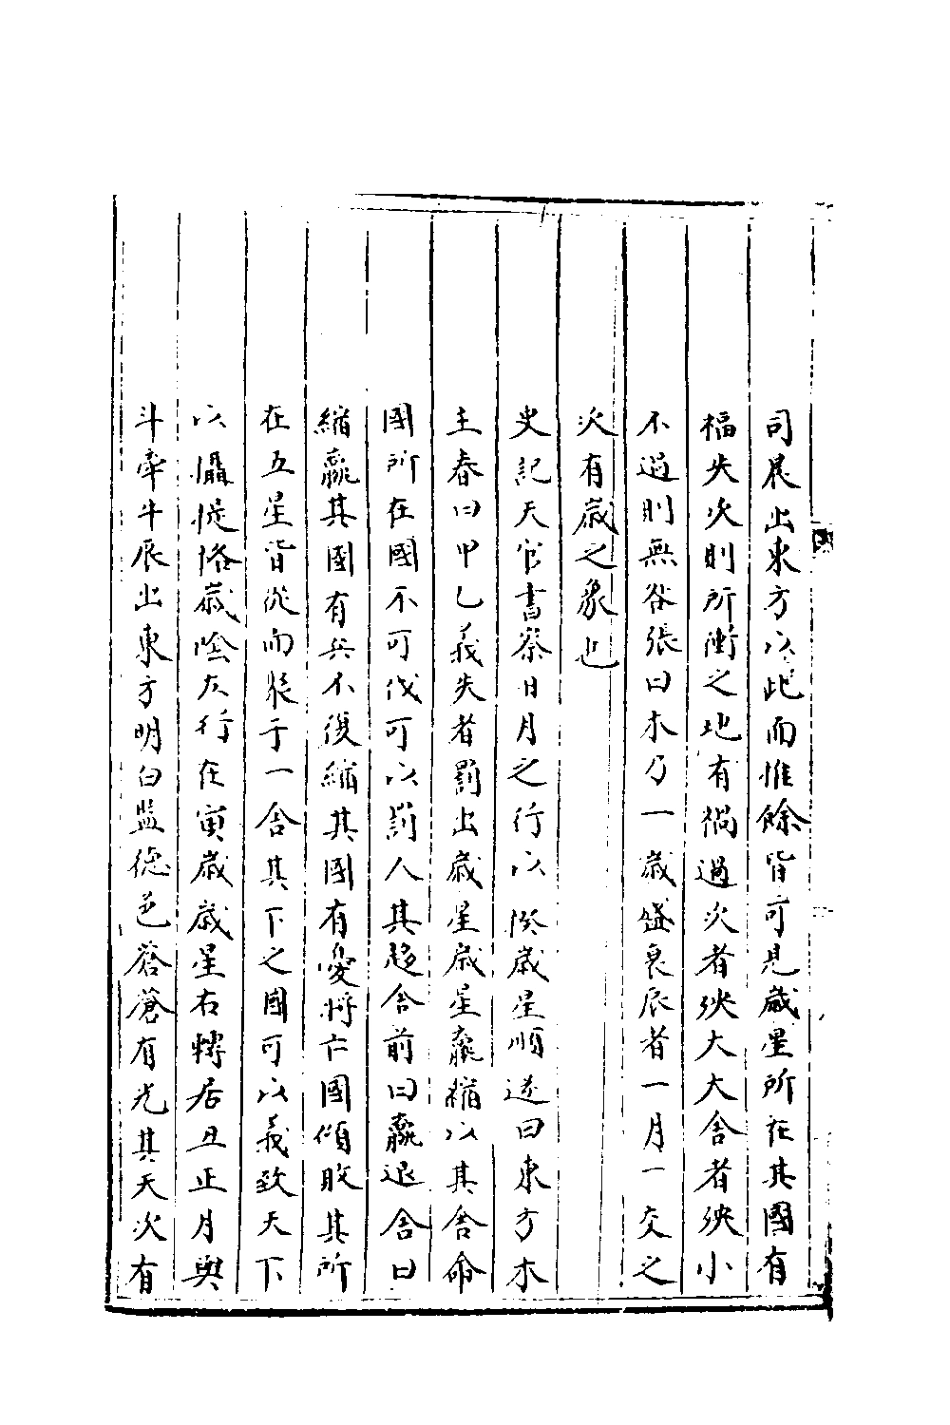 司晨出東方以此而惟餘皆可見歲星所在其國有
福失次則所衝之地有禍過次者殃大大舍者殃小
不過則無咎張曰木乃一歲盛衰辰者一月一交之
次有歲之象也
史記天官書察日月之行以揆歲星順逆曰東方木
主春曰甲乙義失者罰出歲星歲星贏縮以其舍命
國所在國不可伐可以罰人其趨舍前曰贏退舍曰
縮贏其國有兵不復縮其國有憂將亡國傾敗其所
在五星皆從而聚于一舍其下之國可以義致天下
以懾提格歲陰左行在寅歲歲星右轉居丑正月與
斗牽牛辰出東方明白監德色蒼蒼有光其天次有